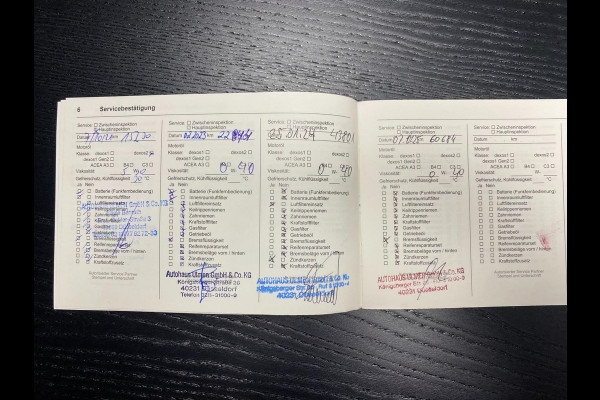 6 Servicebestätigung
Service: Zwischeninspektion
Hauptinspektion
Datum km
Motoröl
Klasse: dexos1 dexos2
dexos1 Gen2
ACEA A3 B4 C3
Viskosität
Gefrierschutz, Kühlflüssigkeit
30 °C
Ja Nein
Batterie (Funkfernbedienung)
Innenraumfilter
Luftfiltereinsatz
Keilrippenriemen
Zahnriemen
Kraftstofffilter
Gasfilter
Getriebeöl
Bremsflüssigkeit
Reifenreparaturset
Bremsbeläge vorn / hinten
Zündkerzen
Kraftstoffzusatz
Autorisierter Service Partner
Stempel und Unterschrift
Service: Zwischeninspektion
Hauptinspektion
Datum km
Motoröl
Klasse: dexos1 dexos2
dexos1 Gen2
ACEA A3 B4 C3
Viskosität 0 W 40
Gefrierschutz, Kühlflüssigkeit
Ja Nein
Batterie (Funkfernbedienung)
Innenraumfilter
Luftfiltereinsatz
Keilrippenriemen
Zahnriemen
Kraftstofffilter
Gasfilter
Getriebeöl
Bremsflüssigkeit
Reifenreparaturset
Bremsbeläge vorn / hinten
Zündkerzen
Kraftstoffzusatz
Autohaus Ulmen GmbH & Co. KG
Königsberger Straße
40231 Düsseldorf
Telefon 0211-31000-0
Service: Zwischeninspektion
Hauptinspektion
25.01.24
Motoröl
Klasse: dexos1 dexos2
dexos1 Gen2
ACEA A3 B4 C3
Viskosität 0 W 40
Gefrierschutz, Kühlflüssigkeit
Ja Nein
Batterie (Funkfernbedienung)
Innenraumfilter
Luftfiltereinsatz
Keilrippenriemen
Zahnriemen
Kraftstofffilter
Gasfilter
Getriebeöl
Bremsflüssigkeit
Reifenreparaturset
Bremsbeläge vorn / hinten
Zündkerzen
Kraftstoffzusatz
AUTOHAUS ULMEN GMBH & Co. KG
Königsberger Str.
40231 Düsseldorf
Service: Zwischeninspektion
Hauptinspektion
Datum km
Motoröl
Klasse: dexos1 dexos2
dexos1 Gen2
ACEA A3 B4 C3
Viskosität 0 W 40
Gefrierschutz, Kühlflüssigkeit
Ja Nein
Batterie (Funkfernbedienung)
Innenraumfilter
Luftfiltereinsatz
Keilrippenriemen
Zahnriemen
Kraftstofffilter
Gasfilter
Getriebeöl
Bremsflüssigkeit
Reifenreparaturset
Bremsbeläge vorn / hinten
Zündkerzen
Kraftstoffzusatz
AUTOHAUS ULMEN GMBH & Co. KG
Königsberger Str.
40231 Düsseldorf
Service: Zwischeninspektion
Hauptinspektion
Datum km
Motoröl
Klasse: dexos1 dexos2
dexos1 Gen2
ACEA A3 B4 C3
Viskosität
Gefrierschutz, Kühlflüssigkeit
Ja Nein
Batterie (Funkfernbedienung)
Innenraumfilter
Luftfiltereinsatz
Keilrippenriemen
Zahnriemen
Kraftstofffilter
Gasfilter
Getriebeöl
Bremsflüssigkeit
Reifenreparaturset
Bremsbeläge vorn / hinten
Zündkerzen
Kraftstoffzusatz
Autorisierter Service Partner
Stempel und Unterschrift